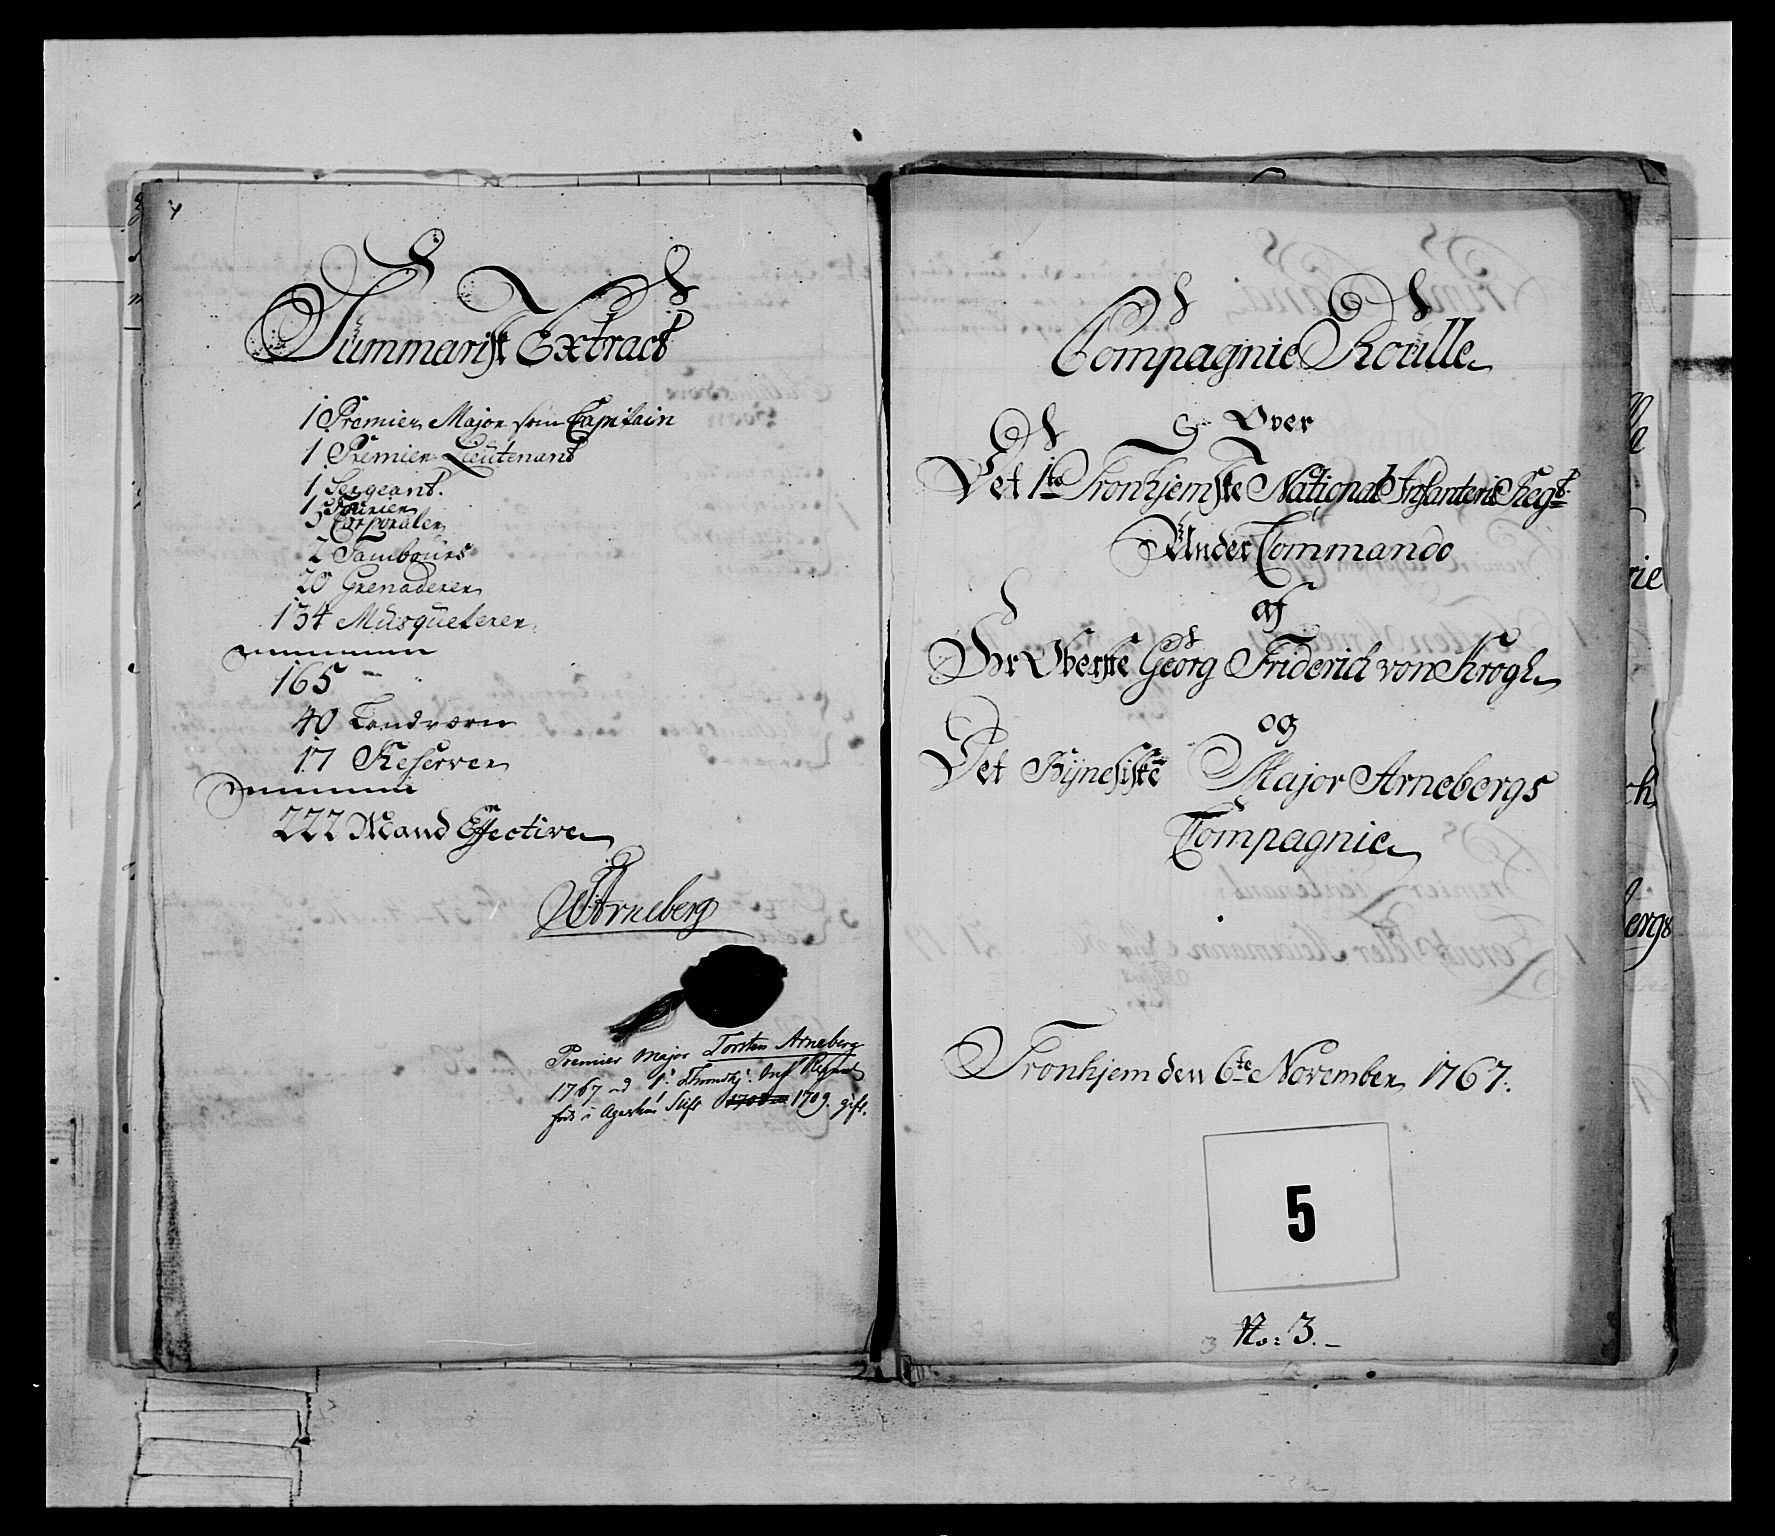 Summarisk Extract
1 Premier Major som Capitain
1 Premier Lieutenant
1 Sergeant.
1 Fourier
5 Corporaler
2 Tambours
20 Grenaderer
134 Musqueterer
165
40 Landværn
17 Reserver
222 Mand Effective
TArneberg
Premier Major Torsten Arneberg
1767 vd 1ste Throndhj. Inf Regmt
født i Agerhus Stift 1709. gift.
Compagnie Roulle
Over
Det 1te Tronhjemske National Infanterie Regt:
Under Commando
af
Hr Oberste Georg Friderich von Krogh
og
Det Bynesiske Major Arnebergs
Compagnie
Tronhjem den 6te November 1767.
5
No: 3.
3